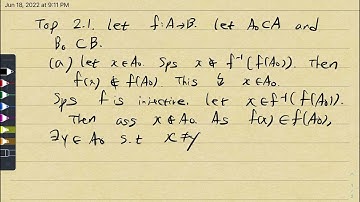 Jun 18, 2022 at 9:11 PM
Top 2.1. Let f: A→B. Let A₀⊂A and
B₀ ⊂ B.
(a) Let x ∈ A₀. Sps x ∉ f⁻¹(f(A₀)). Then
f(x) ∉ f(A₀). This ↯ x ∈ A₀.
Sps f is injective. Let x ∈ f⁻¹(f(A₀)).
Then ass x ∉ A₀. As f(x) ∈ f(A₀),
∃y ∈ A₀ s.t x ≠ y